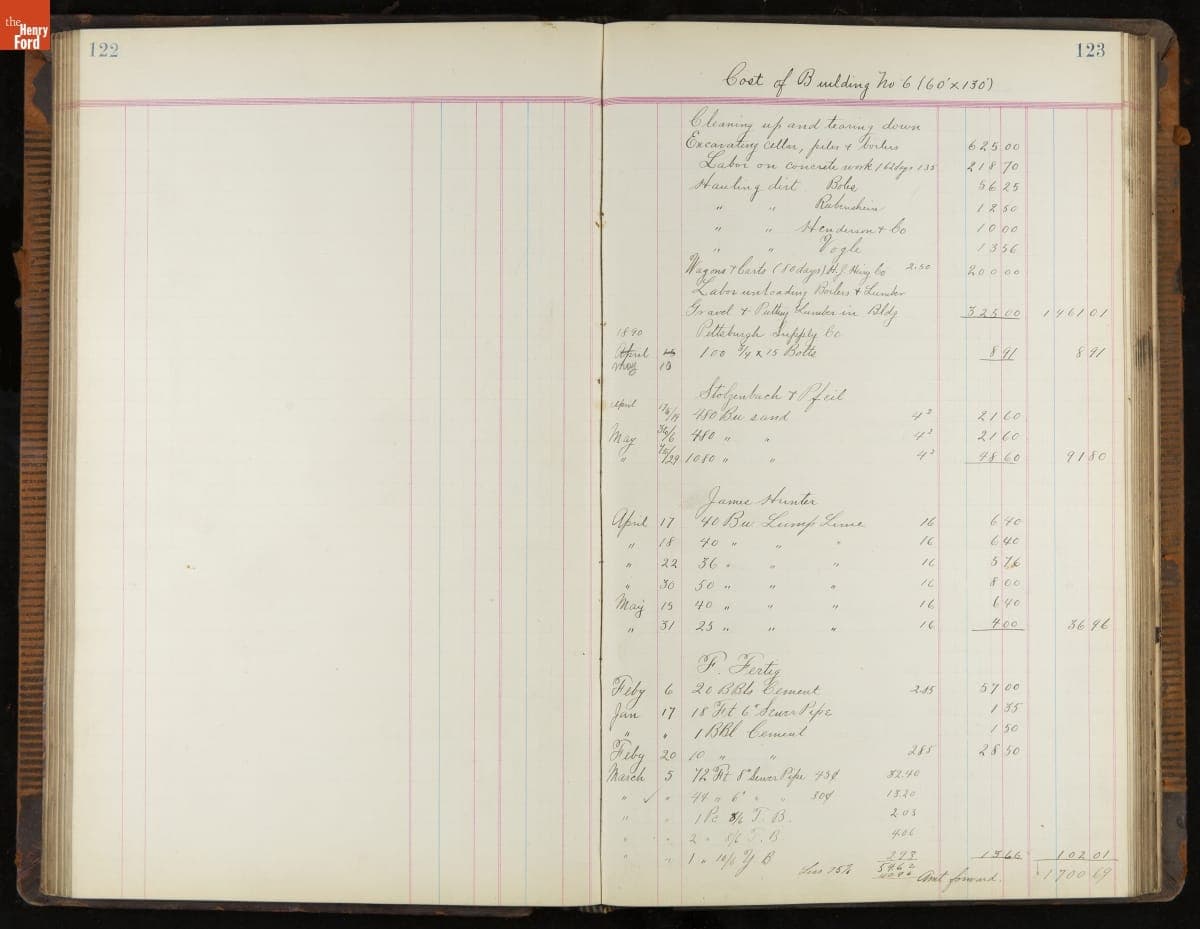 the
Henry
Ford
122
123
Cost of Building No 6 (60'x130')
Cleaning up and tearing down
Excavating cellar, piles & boilers 625 00
Labor on concrete work 162 days 135 218 70
Hauling dirt Boles 56 25
" " Rubenstein 12 50
" " Henderson & Co 10 00
" " Vogle 13 56
Wagons & Carts (80 days) H.J. Heinz Co 2.50 200 00
Labor unloading Boilers & Lumber
Gravel & Putting Lumber in Bldg 325 00 1461 01
1890 Pittsburgh Supply Co
April 100 3/4 x 15 Bolts 8 91 8 91
May 10
Stolzenbach & Pfeil
April 17/19 480 Bu sand 4½ 21 60
May 30/6 480 " " 4½ 21 60
" /29 1080 " " 4½ 48 60 91 80
James Hunter
April 17 40 Bu Lump Lime 16 6 40
" 18 40 " " " 16 6 40
" 22 36 " " " 16 5 76
" 30 50 " " " 16 8 00
May 15 40 " " " 16 6 40
" 31 25 " " " 16 4 00 36 96
F. Fertig
Feby 6 20 BBls Cement 285 57 00
Jan 17 18 Ft 6" Sewer Pipe 1 35
" " 1 BBl Cement 1 50
Feby 20 10 " " 285 28 50
March 5 72 Ft 8" Sewer Pipe 45¢ 32.40
" ✓ " 44 " 6" " " 30¢ 13.20
" " 1 Pc 8/6 T. B. 2 03
" " 2 " 8/6 T. B 4 06
" " 1 " 10/8 Y B 2 93 13 66 102 01
Less 75% 54 62 40 96 Amt forward. 1700 69